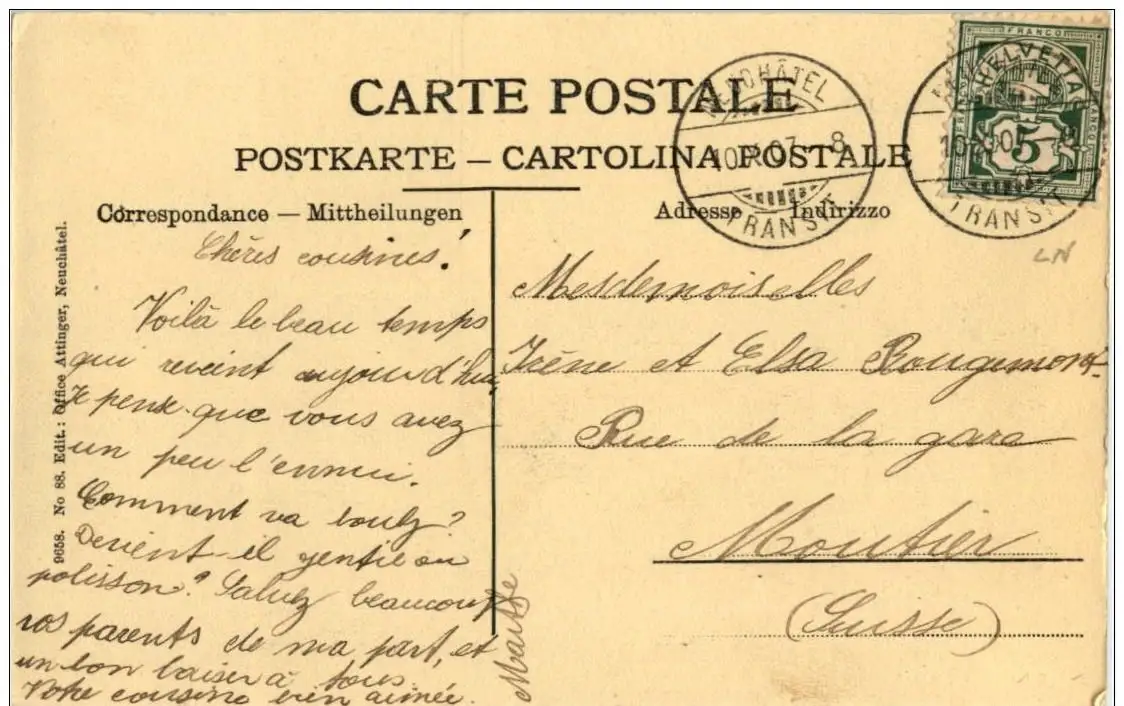 CARTE POSTALE
POSTKARTE — CARTOLINA POSTALE
Correspondance — Mittheilungen
Adresse — Indirizzo
Chères cousines!
Voilà le beau temps
qui revient aujourd'hui,
Je pense que vous avez
un peu l'ennui.
Comment va
Devient-il gentil ou
polisson? Saluez beaucoup
vos parents de ma part, et
un bon baiser à tous
Votre cousine bien aimée.
Marthe
Mesdemoiselles
Irène et Elsa Rougemont
Rue de la gara
Moutier
(Suisse)
9658. No 88. Edit.: Office Attinger, Neuchâtel.
NEUCHÂTEL
10. 07. - 8
TRANSIT
FRANCO
HELVETIA
5
FRANCO
FRANCO
10. 07. - 8
TRANSIT
LN